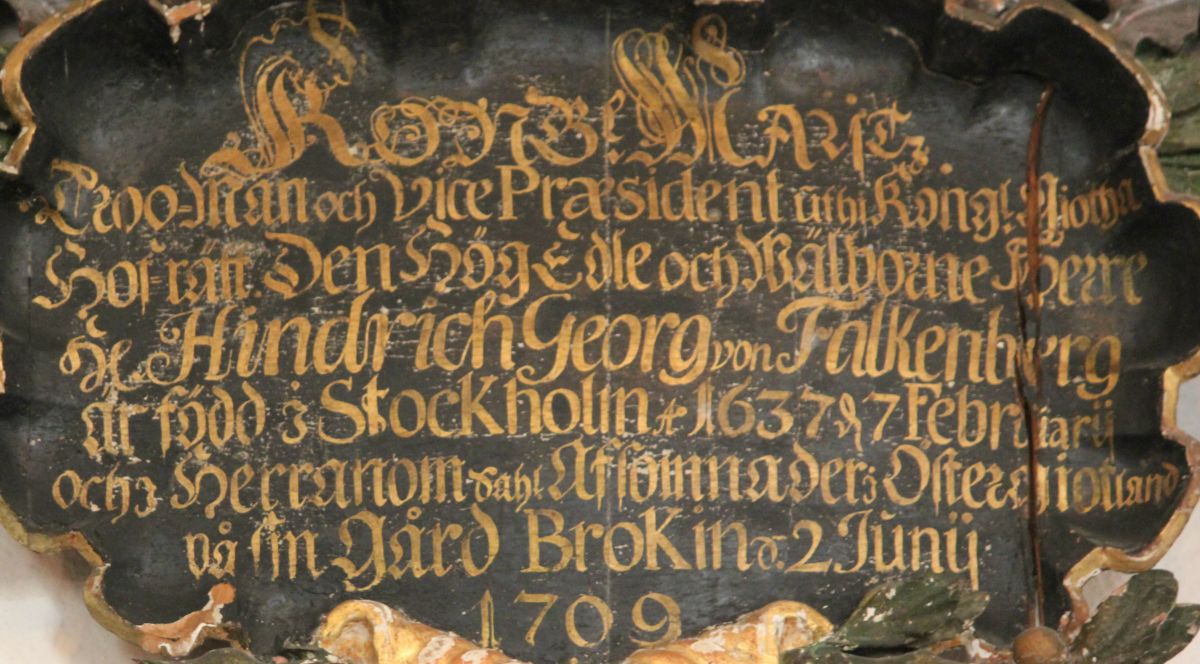 Konge: Maÿstz
Troo-Man och Vice Præsident uthi Kongl. Giotha
Hof-rätt. Den Hög Edle och Wälborne Herre
H. Hindrich Georg von Falkenberg
Är född i Stockholm A 1637 d 7 Februarij
och i Herranom Sahl. Afsomnader i Östergiotland
på sin gård Brokin d. 2 Junij
1709